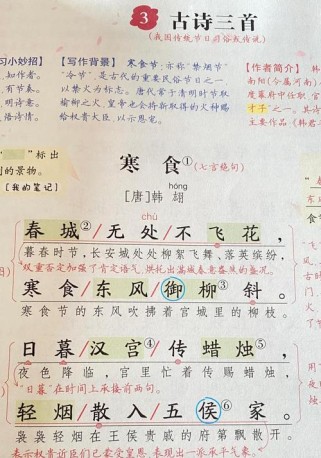 3 古诗三首
(我国传统节日习俗或传说)
习小妙招】
,知作者。
,有节奏。
,明诗意。
,悟诗情。
【写作背景】 寒食节:亦称“禁烟节”
“冷节”,是古代的重要民俗节日之一,
以禁火为标志。唐代常于清明时节取
榆柳之火,皇帝也会将新取得的火种赐
给权贵大臣,以示恩宠。
【作者简介】
南阳(今属河南)
才子”之一。其诗
主要作品《韩君
”标出
的景物。
【我的笔记】
寒 食①(七言绝句)
hóng
[唐]韩 翃
chù
春 城②/无 处/不 飞 花,
暮春时节,长安城处处柳絮飞舞、落英缤纷,
双重否定加强了肯定语气,烘托出满城春意盎然的盛况。
寒 食/东 风/御 柳③ 斜。
寒食节的东风吹拂着宫城里的柳枝。
日 暮/汉 宫④/传 蜡 烛⑤,
夜色降临,宫里忙着传赐蜡烛,
“日暮”在时间上承接前两句。
轻 烟/散 入/五 侯⑥ 家。
袅袅轻烟在王侯贵戚的府第飘散开。
表示权贵近臣们已蒙受皇恩,表现出一派承平气象。